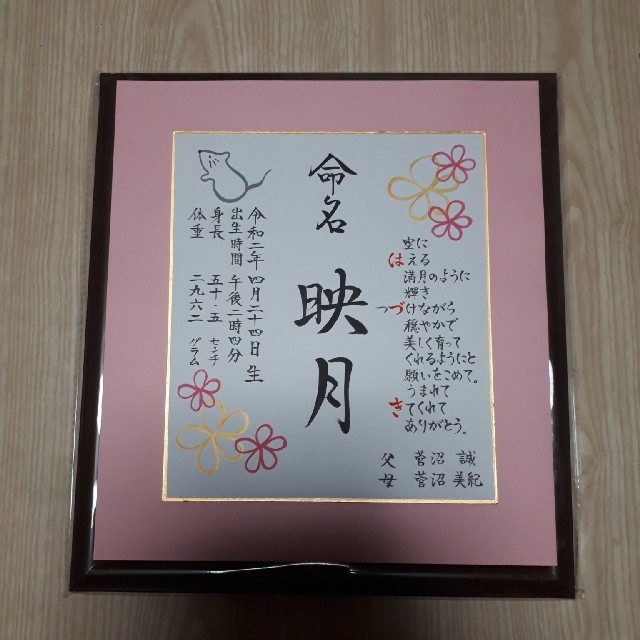 空に
はえる
満月のように
輝き
つづけながら
穏やかで
美しく育って
くれるようにと
願いをこめて。
うまれて
きてくれて
ありがとう。
父 菅沼 誠
母 菅沼 美紀
命名
映月
令和二年 四月二十四日 生
出生時間 午後二時四分
身長 五十.五 センチ
体重 二九六二 グラム